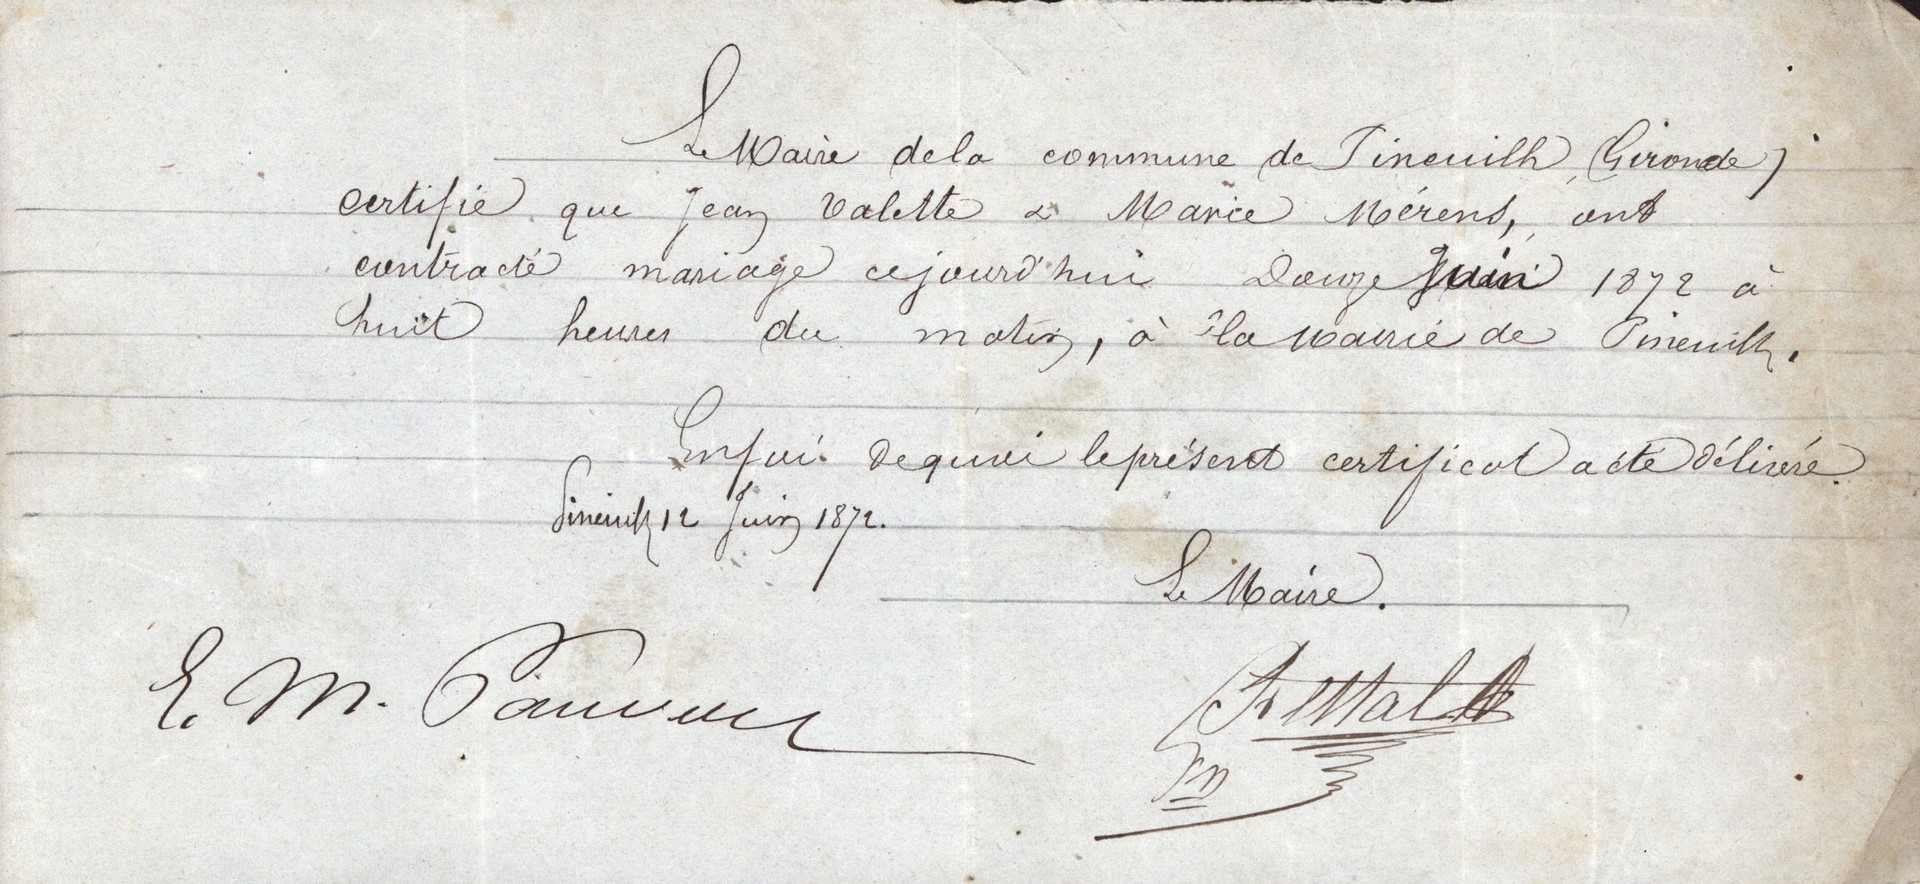 Le Maire de la commune de Pineuilh (Gironde)
certifie que Jean Valette & Marie Mérens, ont
contracté mariage cejourd'hui Douze Juin 1872 à
huit heures du matin, à la Mairie de Pineuilh.
En foi de quoi le présent certificat a été délivré.
Pineuilh 12 Juin 1872.
Le Maire.
E. M.